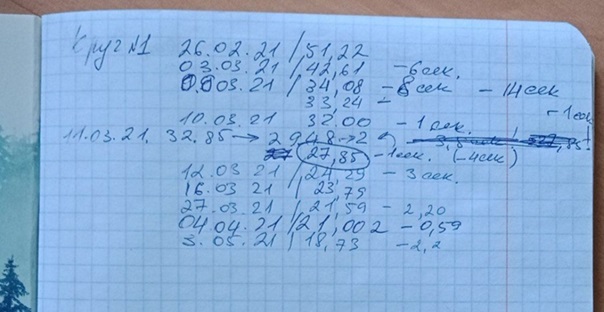 Круг №1 26.02.21 / 51,22
03.03.21 / 42,61 - 6 сек.
03.21 / 34,08 - 8 сек - 14 сек
33,24 - - 1 сек
10.03.21 32.00 - 1 сек.
11.03.21. 32.85 → 29,48 → 2
27,85 - 1 сек. (-4 сек)
12.03 21 / 24,29 - 3 сек.
16.03 21 / 23,79
27.03.21 / 21,59 - 2,20
04 04.21 / 21,002 - 0,59
3.05.21 / 18,73 - 2,2